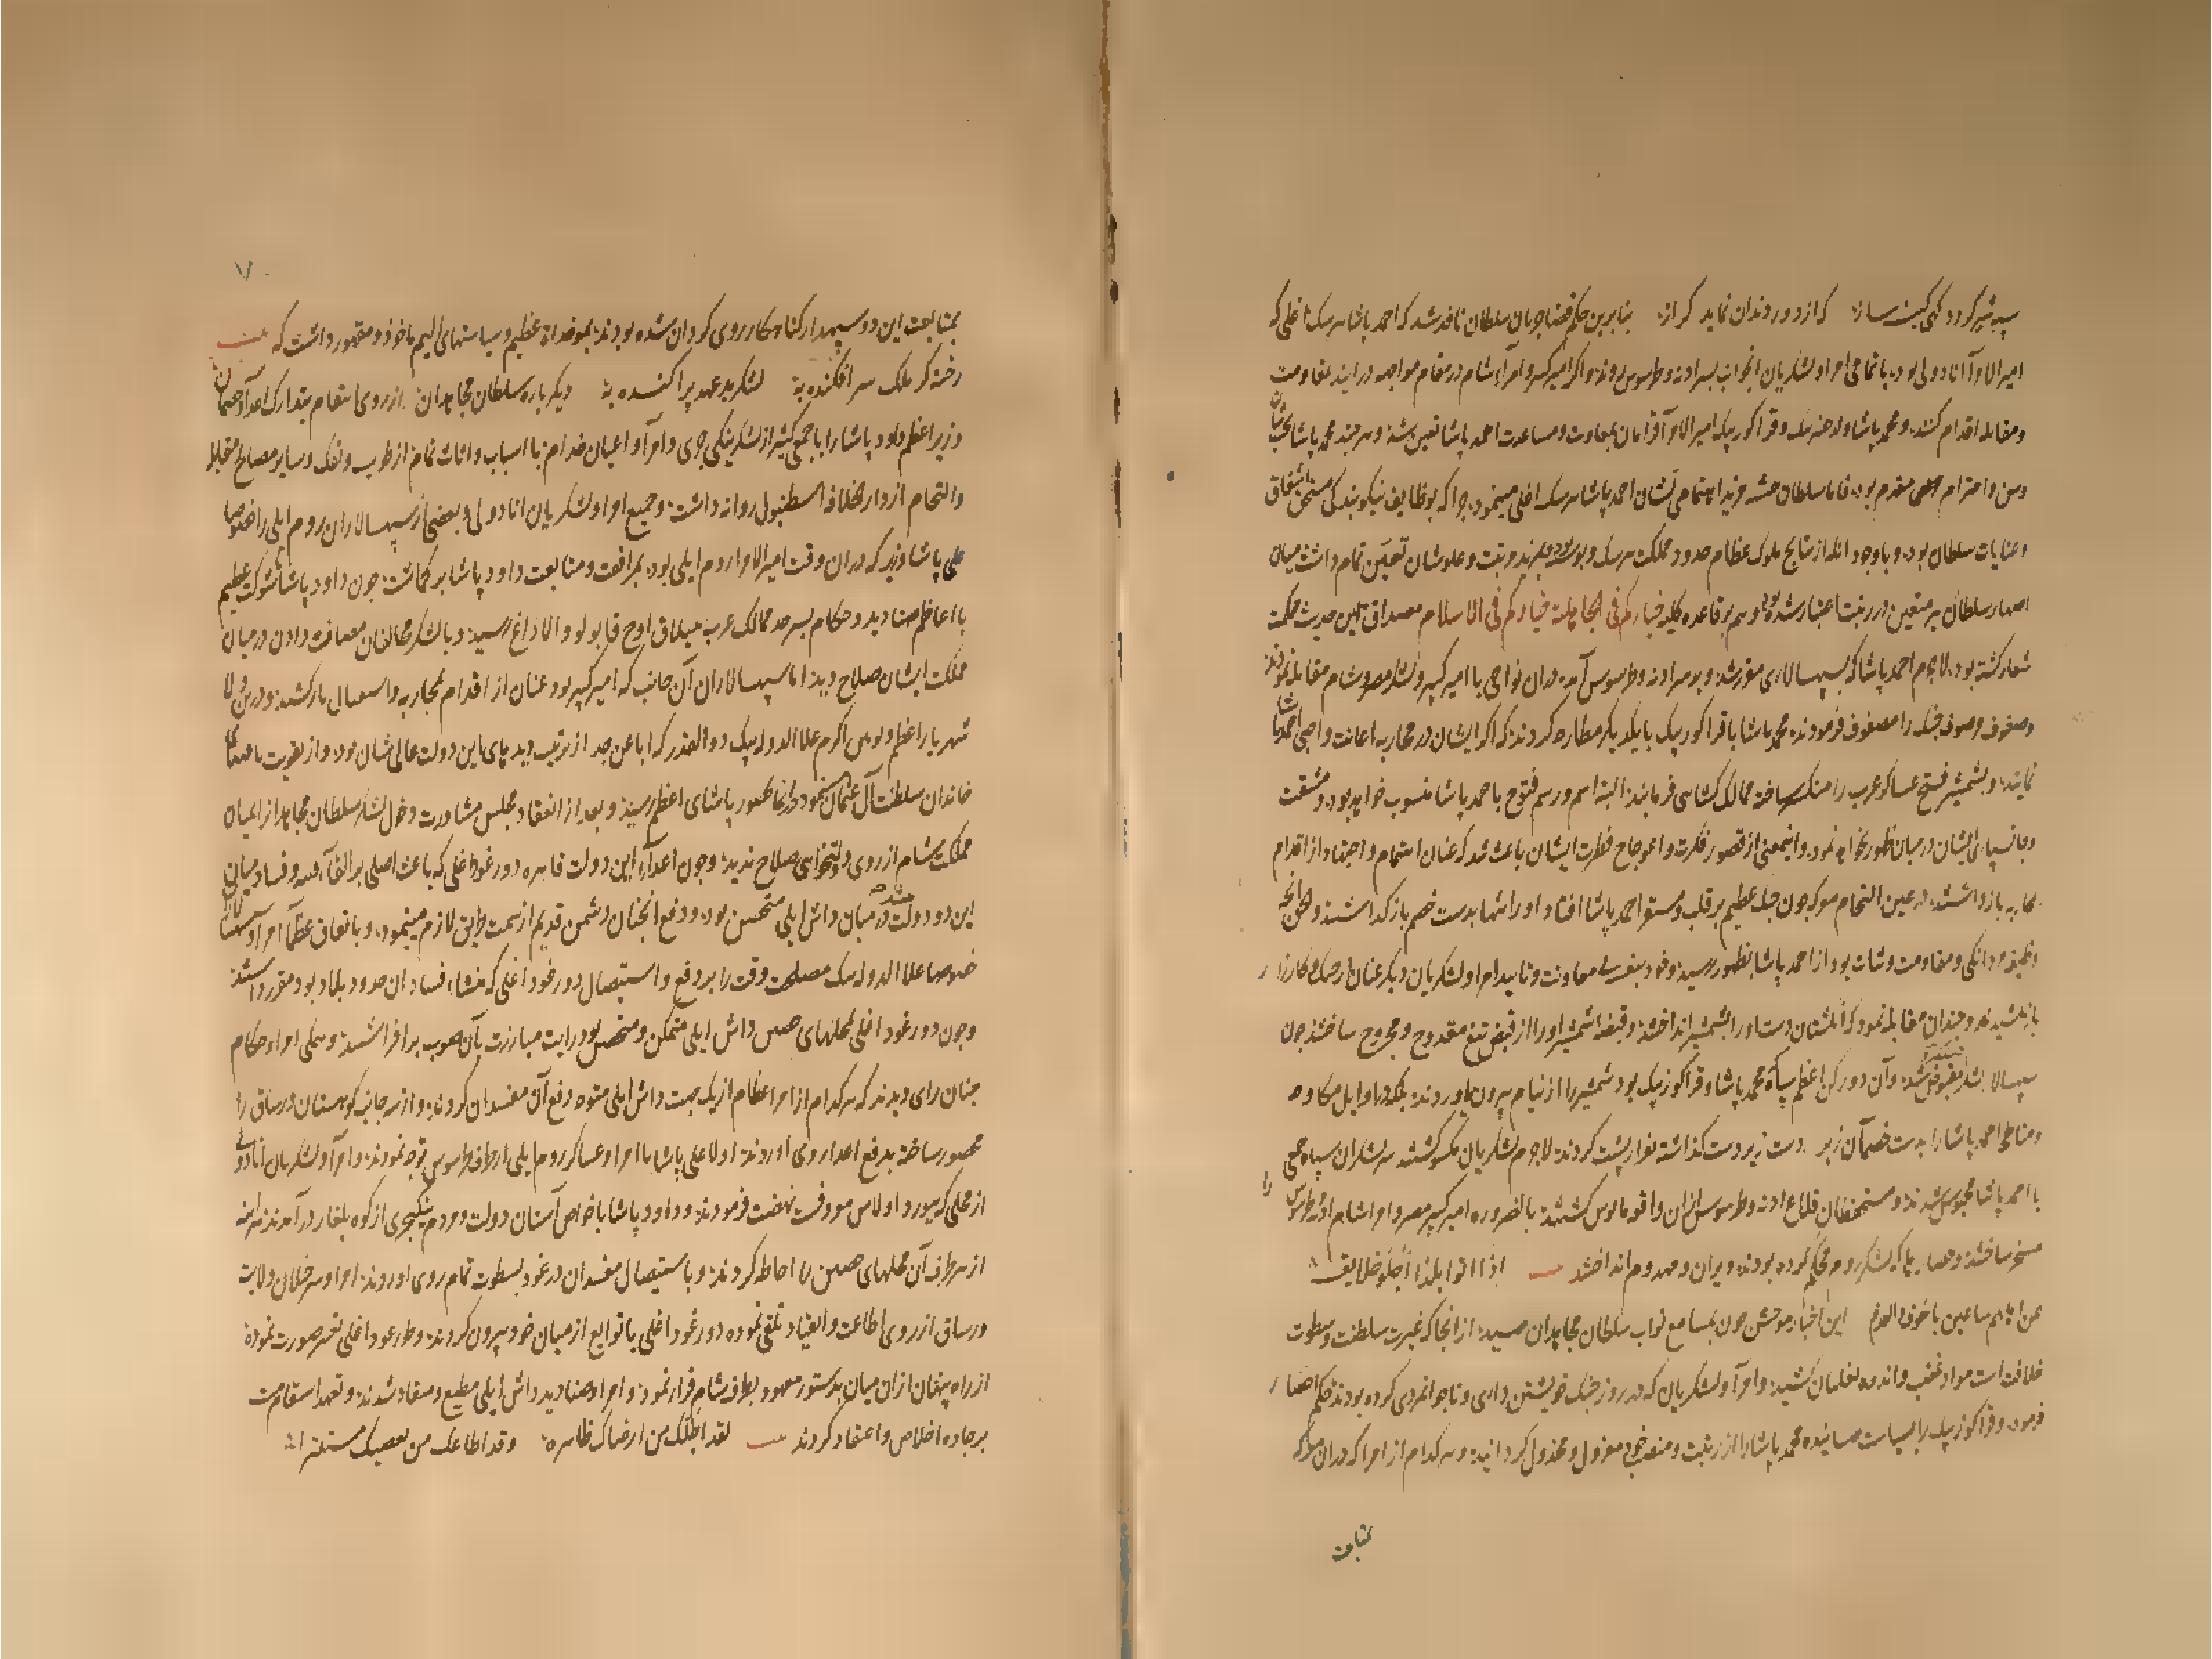 سپه شیر کردد کهی کیت سازد که از دور دندان نماید کراز بنابرین حکم قضا جریان سلطان نافذ شد که احمد پاشا هرسک اغلی که
امیر الامرآ انادولی بود با تمامی امرا و لشکریان انجوانب بسر ادنه و طرسوس روند و اکر امیر کبیر و امرآء شام در مقام مواجهه در ایند بمقاومت
و مقابله اقدام کنند و محمد پاشا ولد خضر بیک و قراکوز بیک امیر الامرآ قرامان بمعاونت و مساعدت احمد پاشا تعیین شدند و هر چند محمد پاشا بحسب شان
و سن و احترام مقدم بود فاما سلطان مزید اهتمامی بشان احمد پاشا هرسک اغلی مینمود چرا که بوظایف نیکو بندکی مستحق اشفاق
و عنایات سلطان بود و با وجود انکه از نتایج ملوک عظام حدود مملکت هرسک و بوسنه بود بمزید رتبت و علو شان تعین تمام داشت میان
اصهار سلطان نیز متعین در رتبت اعتبار شده بود و هم بر قاعده کلیه خیارکم فی الجاهلیة خیارکم فی الاسلام مصداق این حدیث حکمت
شعار کشته بود لاجرم احمد پاشا که بسپهسالاری مقرر شد و بر سر ادنه و طرسوس آمد در ان نواحی با امیر کبیر و لشکر مصر و شام مقابله نمودند
و صفوف و صنوف جنک را مصفوف فرمودند محمد پاشا با قراکوز بیک با یکدیکر مطارحه کردند که اکر ایشان در محاربه اعانت واجبی احمد پاشا
نمایند و بشمشیر فتح عساکر عرب را منکسر ساخته ممالک کشایی فرمایند البته اسم و رسم فتوح باحمد پاشا منسوب خواهد بود و مشقت
و جانسپاری ایشان در میان ظهور نخواهد نمود و اینمعنی از قصور فکرت و اعوجاج فطرت ایشان باعث شد که عنان اهتمام و اجتهاد از اقدام
کار به باز داشتند در عین التحام معرکه چون جبل عظیم بر قلب و مستقر احمد پاشا افتاد او را تنها بدست خصم باز کذاشتند و الحق انچه
وظیفه مردانکی و مقاومت و ثبات بود از احمد پاشا بظهور رسید و خود بنفسه بی معاونت و تایید امرا و لشکریان دیکر عنان از جنک و کارزار
باز نکشید و چندان مقابله نمود که انکشتان دست او را بشمشیر انداختند و قبضه شمشیر او را از قبض تیغ مقدوح و مجروح ساختند چون
سپهسالار لشکر مقبوض شد و آن دو رکن اعظم سپاه که محمد پاشا و قراکوز بیک بود شمشیر را از نیام بیرون نیاوردند بلکه در اوایل مکاوحه
و مناطحه احمد پاشا را بدست خصمآن زبر دست زیر دست کذاشته بفرار پشت کردند لاجرم لشکریان منکسر کشتند سر لشکران سپاه جمعی
با احمد پاشا محبوس شدند و مستحفظان قلاع ادنه و طرسوس ازان واقعه مایوس کشتند بالضروره امیر کبیر مصر و امراء شام ادنه و طرسوس را
مسخر ساختند و حصارها که لشکر روم محکم کرده بودند ویران و مهدوم انداختند اذا اتوا بلدا اجلو خلایقه
عن ایهم ساعین با خوف الخ این اخبار موحش چون بمسامع نواب سلطان مجاهدان رسید از انجا که غیرت سلطنت و سطوت
خلافت است مواد غضب و اندوه بغلیان کشید و امرآ و لشکریان که در روز جنک خویشتن داری و ناجوانمردی کرده بودند بحکم احضار
فرمود و قراکوز بیک را بسیاست رسانیده محمد پاشا را از رتبت و منصب خود معزول و مخذول کردانید و هر کدام از امرا که در ان معرکه
بمتابعت
بمتابعت این دو سپهدار کناه کار روی کردان شده بودند بمواخذات عظیم و سیاستهای الیم ماخوذ و مقهور داشت که بیت
رخنه کر ملک سر افکنده به لشکر بد عهد پراکنده به دیکر باره سلطان مجاهدان از روی انتقام بتدارک اعدآ و خصمان
وزیر اعظم داود پاشا را با جمعی کثیر از لشکر ینکی جری و امرآ و اعیان خدام با اسباب و اثاث تمام از طوب و تفنک و سایر مصالح مقابله
و التحام از دار الخلافه اسطنبول روانه داشت و جمیع امرا و لشکریان انادولی و بعضی از سپهسالاران روم ایلی را خصوصا
علی پاشا وزیر که در ان وقت امیر الامراء روم ایلی بود بمرافقت و متابعت داود پاشا بر کماشت چون داود پاشا بشوکت عظیم
با اعاظم صنادید و حکام بسرحد ممالک عرب بییلاق اوج قابولو و الاداغ رسید و با لشکر مخالفان مصافت دادن در میان
مملکت ایشان صلاح دید اما سپهسالاران آن جانب که امیر کبیر بود عنان از اقدام بمحاربه و استعمال باز کشید و درین ولا
شهریار اعظم و اکرم علاء الدوله بیک ذو القدر که ابا عن جد از تربیت دیده های این دولت عالی شان بود و از تقویت یافتکان
خاندان سلطنت آل عثمان مینمود در انجا بحضور پاشای اعظم رسید و بعد از انعقاد مجلس مشاورت دخول لشکر سلطان مجاهد از اعیان
مملکت شام از روی دولتخواهی صلاح ندید و چون اعداء این دولت قاهره دورغود اغلی که باعث اصلی بر القآء فتنه و فساد میان
این دو دولت شد در میان داش ایلی متحصن بود و دفع انچنان دشمن قدیم از سمت طریق لازم مینمود و باتفاق عظمآ امرآ و سپهسالاران
خصوصا علاء الدوله بیک مصلحت وقت را بر دفع و استیصال دورغود اغلی که منشاء فساد ان حدود بلاد بود مقرر داشتند
و چون دورغود اغلی بمحلهای حصین داش ایلی متمکن و متحصن بود رایت مبارزت بآن صوب بر افراشتند و همکی امرا و حکام
چنان رای دیدند که هر کدام از امراء عظام از یک جهت داش ایلی متوجه دفع آن مفسدان کردند و از هر جانب کوهستان ورساق را
محصور ساخته بدفع اعدا روی اوردند اولا علی پاشا با امرا و عساکر روم ایلی از طرف طرسوس توجه نمودند و امرآ و لشکریان انادولی
از محلی که بیورد اولاس معروفست نهضت فرمودند و داود پاشا با خواص آستان دولت و مردم ینکیجری از کوه بلغار در آمدند هر اینه
از هر طرف آن محلهای حصین را احاطه کردند و باستیصال مفسدان درغود بسطوت تمام روی اوردند امرا و سر خیلان ولایت
ورساق از روی اطاعت و انقیاد تلقی نموده دورغود اغلی با توابع از میان خود بیرون کردند و طورغود اغلی تغییر صورت نموده
از راه پنهان ازان میان بدستور معهود بطرف شام فرار نمود و امرا و صنادید داش ایلی مطیع و منقاد شدند و تعهد استقامت
بر جاده اخلاص و اعتقاد کردند بیت لقد اجلک من ارضاک ظاهره وقد اطاعک من یعصیک مستترا